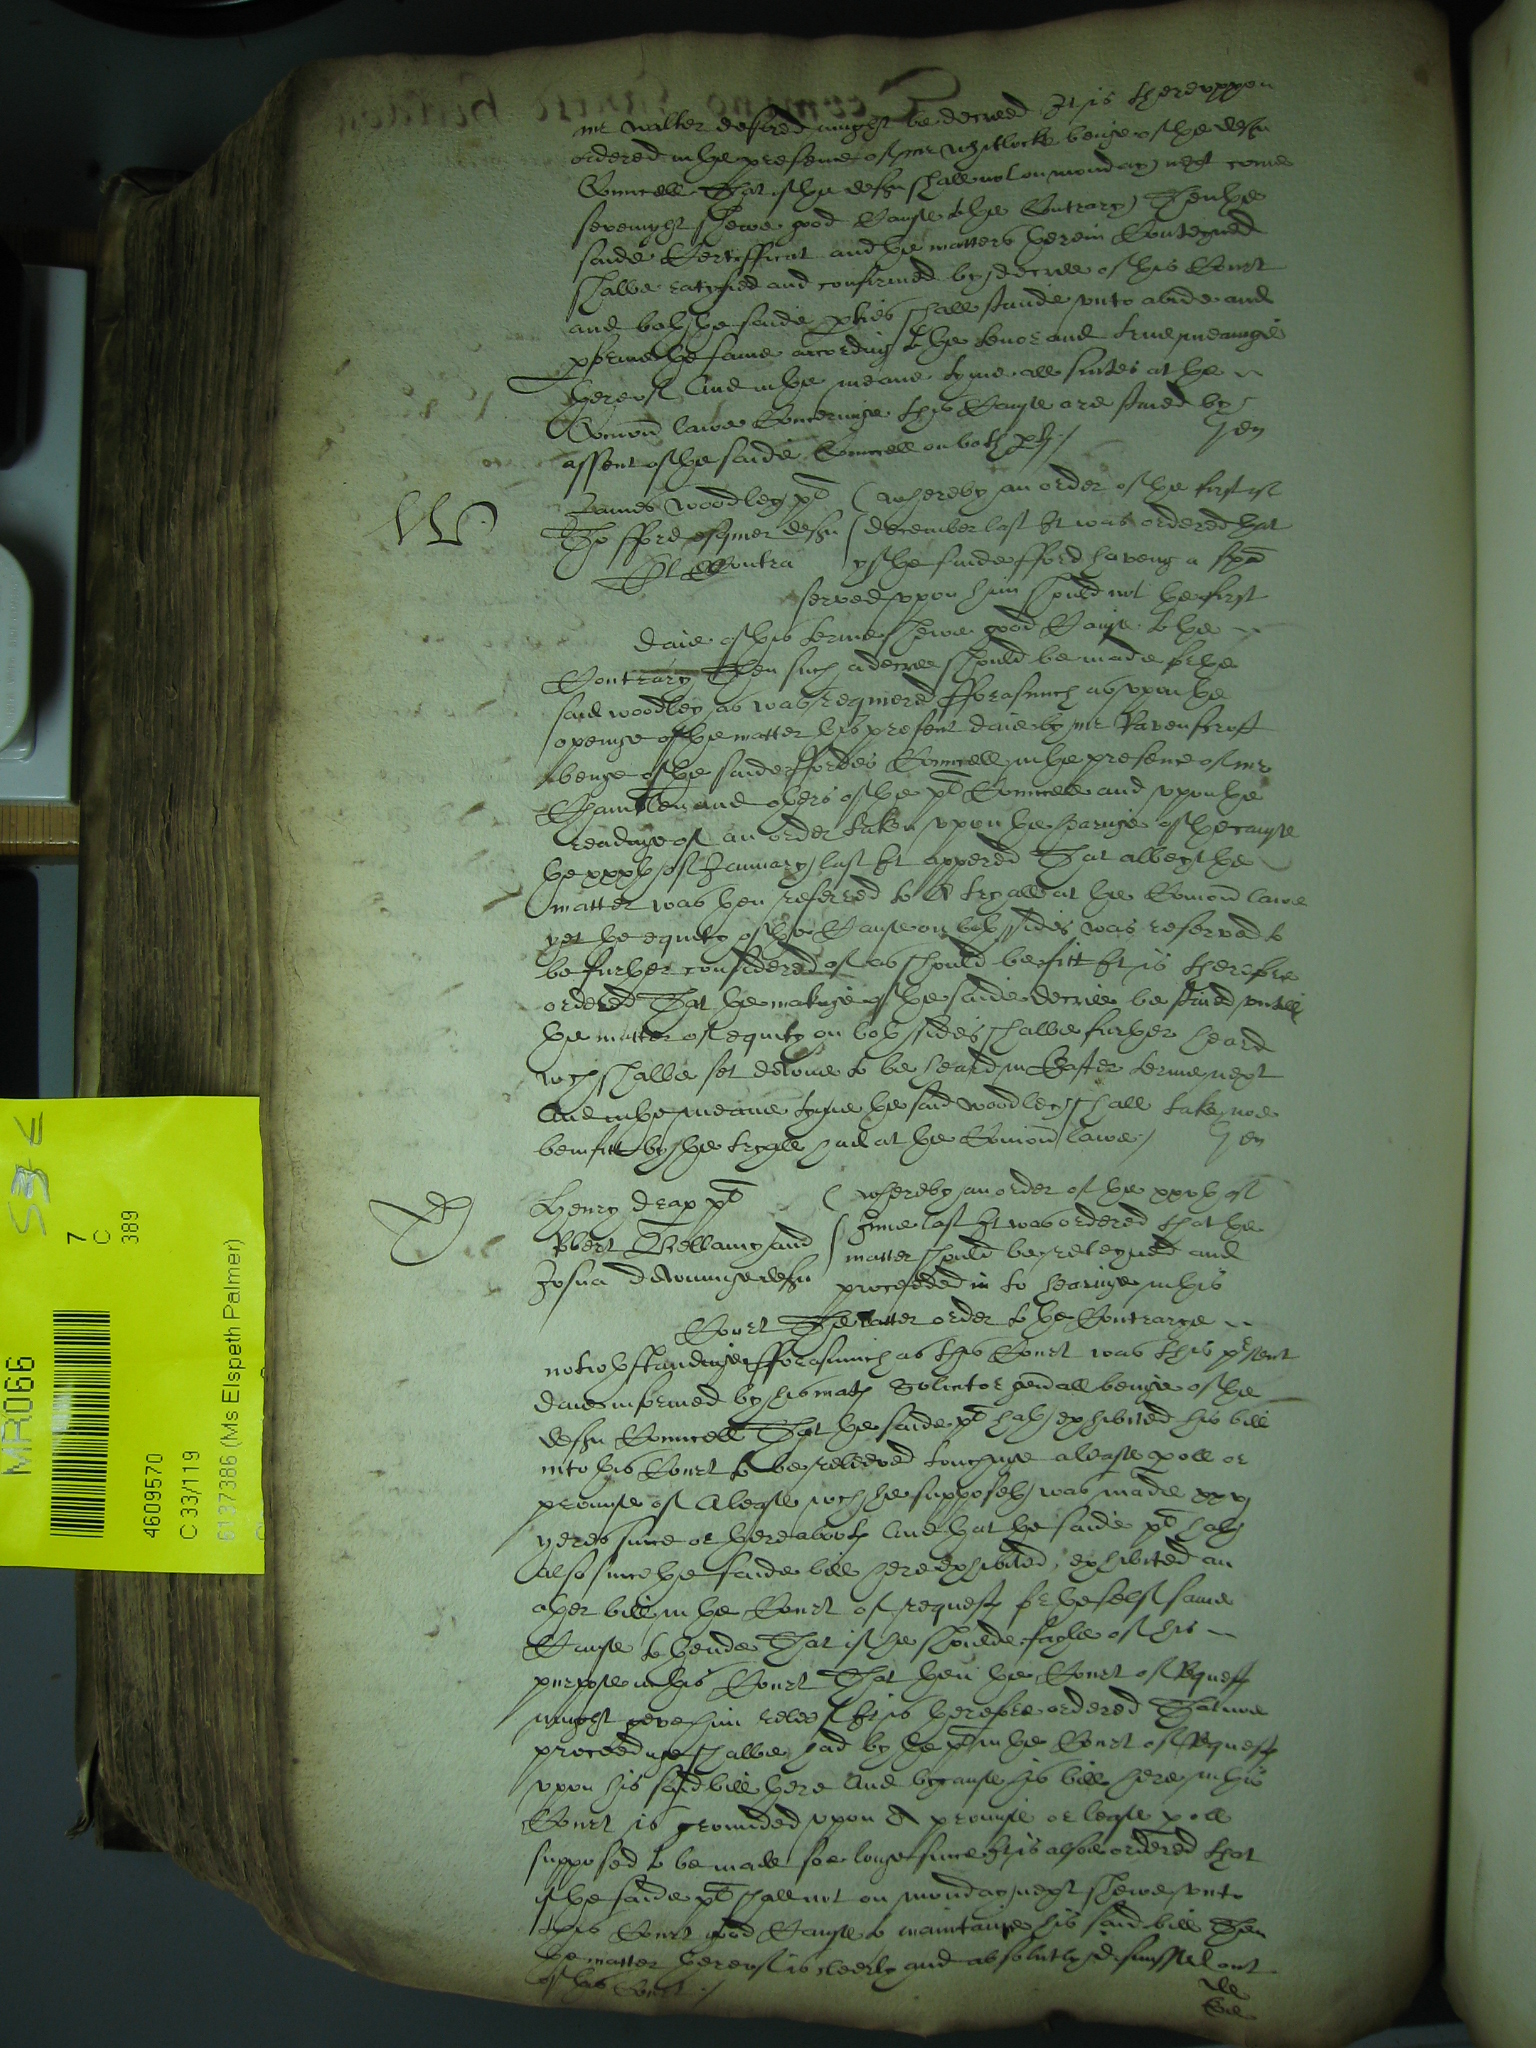 mr walter desired might be decreed It is thereuppon
ordered in the presence of mr whitlocke beinge of the deftes
Councell That if the deft shall not on monday next come
sevenight shewe good Cause to the Contrary Then the
saide Certifficat and the matters therein Conteyned
shalbe ratyfied and confirmed by decree of this Court
and both the saide pties shall stande unto abide and
pforme the same according to the tenor and true meaninge
thereof And in the meane tyme all suites at the
Comon lawe Concerninge this Cause are staied by
assent of the saide Councell on both pts /
W
James woodley pl
Tho fford esquier deft
Et Contra
whereby an order of the first of
december last It was ordered that
yf the saide fford haveng a spa
served upon him should not the first
daie of this terme shewe good Cause to the
Contrary Then such a decree should be made for the
said woodley as was required fforasmuch as upon the
openinge of the matter this present daie by mr Ravenscroft
beinge of the saide ffordes Councell in the presence of mr
and others of the pl Councell and upon the
readinge of an order taken upon the hearinge of the cause
the of January last It appered That albeyt the
matter was then referred to A tryall at the Comon lawe
yet the equity of the Cause on both sides was reserved to
be further considered of as should be fitt It is therefore
ordered That the makinge of the saide decree be staied untill
the matter of equity on both sides shalbe further heard
wch shalbe set downe to be heard in Easter terme next
And in the meane tyme the said woodley shall take noe
benifitt by the tryall had at the Comon lawe /
D
Henry drap pl
Robert Bellamy and
Josua downinge deftes
whereby an order of the xxvth of
June last It was ordered that the
matter should be reteyned and
proceeded in to hearinge in this
Court The latter order to the Contrarye
notwithstandinge fforasmuch as this Court was this present
daie informed by his mats Solicitor gen͠all beinge of the
deftes Councell That the saide pl hath exhibited his bill
into this Court to be releeved touchinge a lease poll or
promyse of A lease wch he supposeth was made
yeres since or thereabouts And that the saide pl hath
also since the saide bill here exhibited, exhibited an
other bill in the Court of requests for the self same
Cause to thende That if he shoulde fayle of his
purpose in this Court That then the Court of Requests
might geve him releef It is therefore ordered That noe
proceedinge shalbe had by the pl in the Court of Requests
upon his said bill there And because his bill here in this
Court is grounded upon A promise or lease poll
supposed to be made soe longe since It is alsoe ordered that
if the saide pl shall not on monday next shewe unto
this Court good Cause to maintaine his said bill Then
the matter thereof is cleerly and absolutly dismissed out
of this Court /
MR066
4609570
C 33/119
6137386 (Ms Elspeth Palmer)
7
C
389